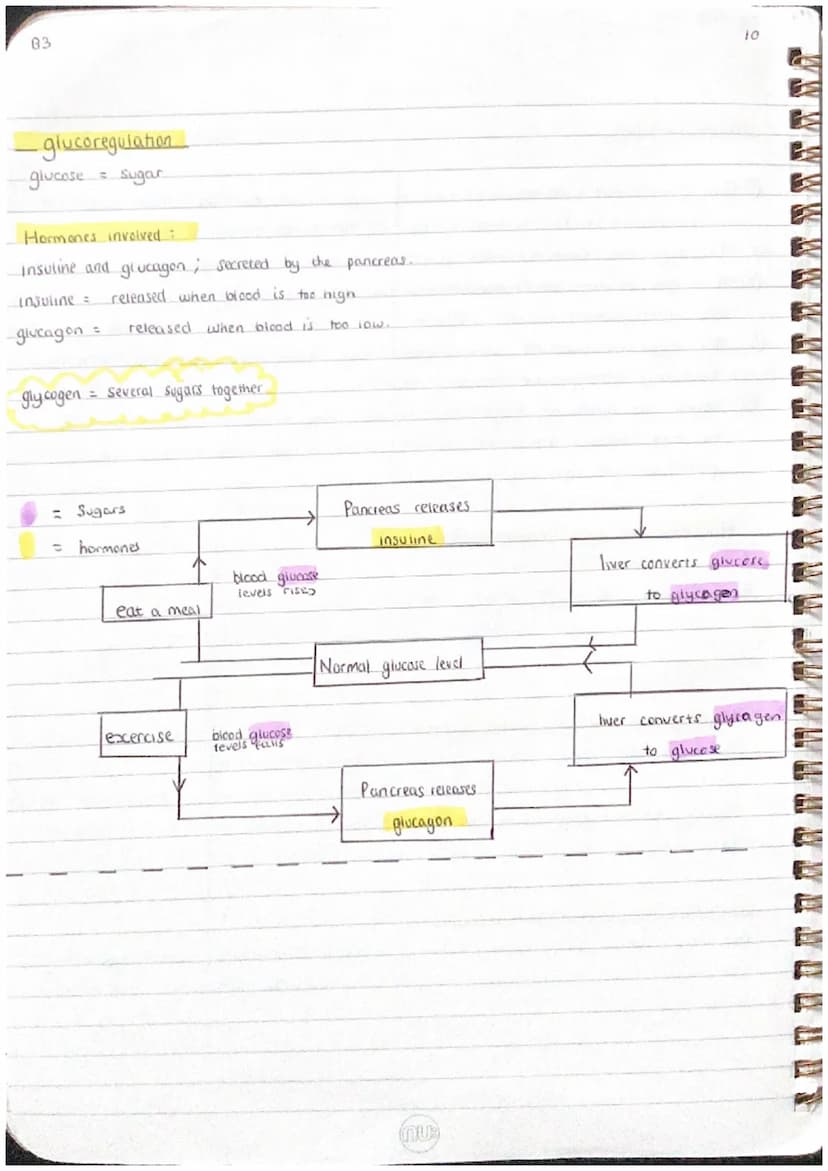 B3
10
glucoregulation
glucose = sugar
Hormones involved :
insuline and glucagon ; secreted by the pancreas.
insuline = released when blood is too high
glucagon = released when blood is too low.
glycogen = several sugars together
= Sugars
= hormones
Pancreas releases
insuline
liver converts glucose
to glycagen
blood glucose
levels rises
eat a meal
Normal glucose level
excercise
blood glucose
levels falls
liver converts glycagen
to glucose
Pancreas releases
glucagon
nu: